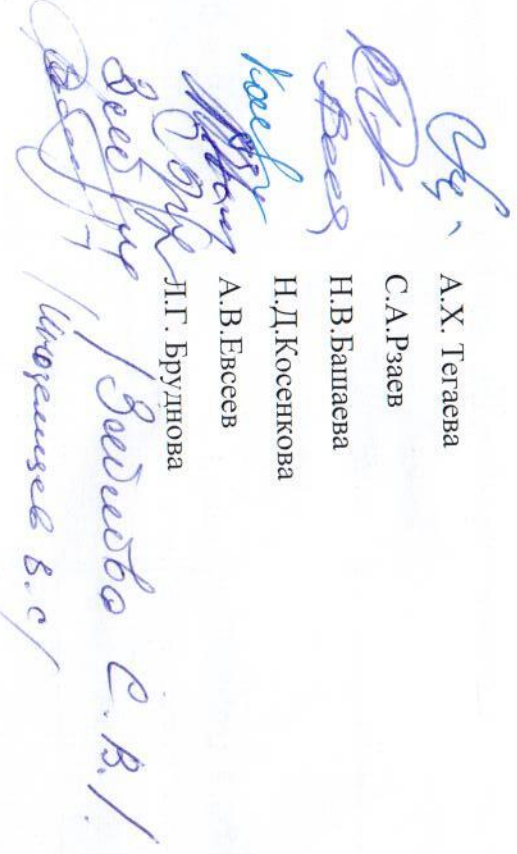 А.Х. Тегаева
С.А.Рзаев
Н.В.Башаева
Н.Д.Косенкова
А.В.Евсеев
Л.Г. Бруднова
С. В. /
/ Иноземцев В. С /